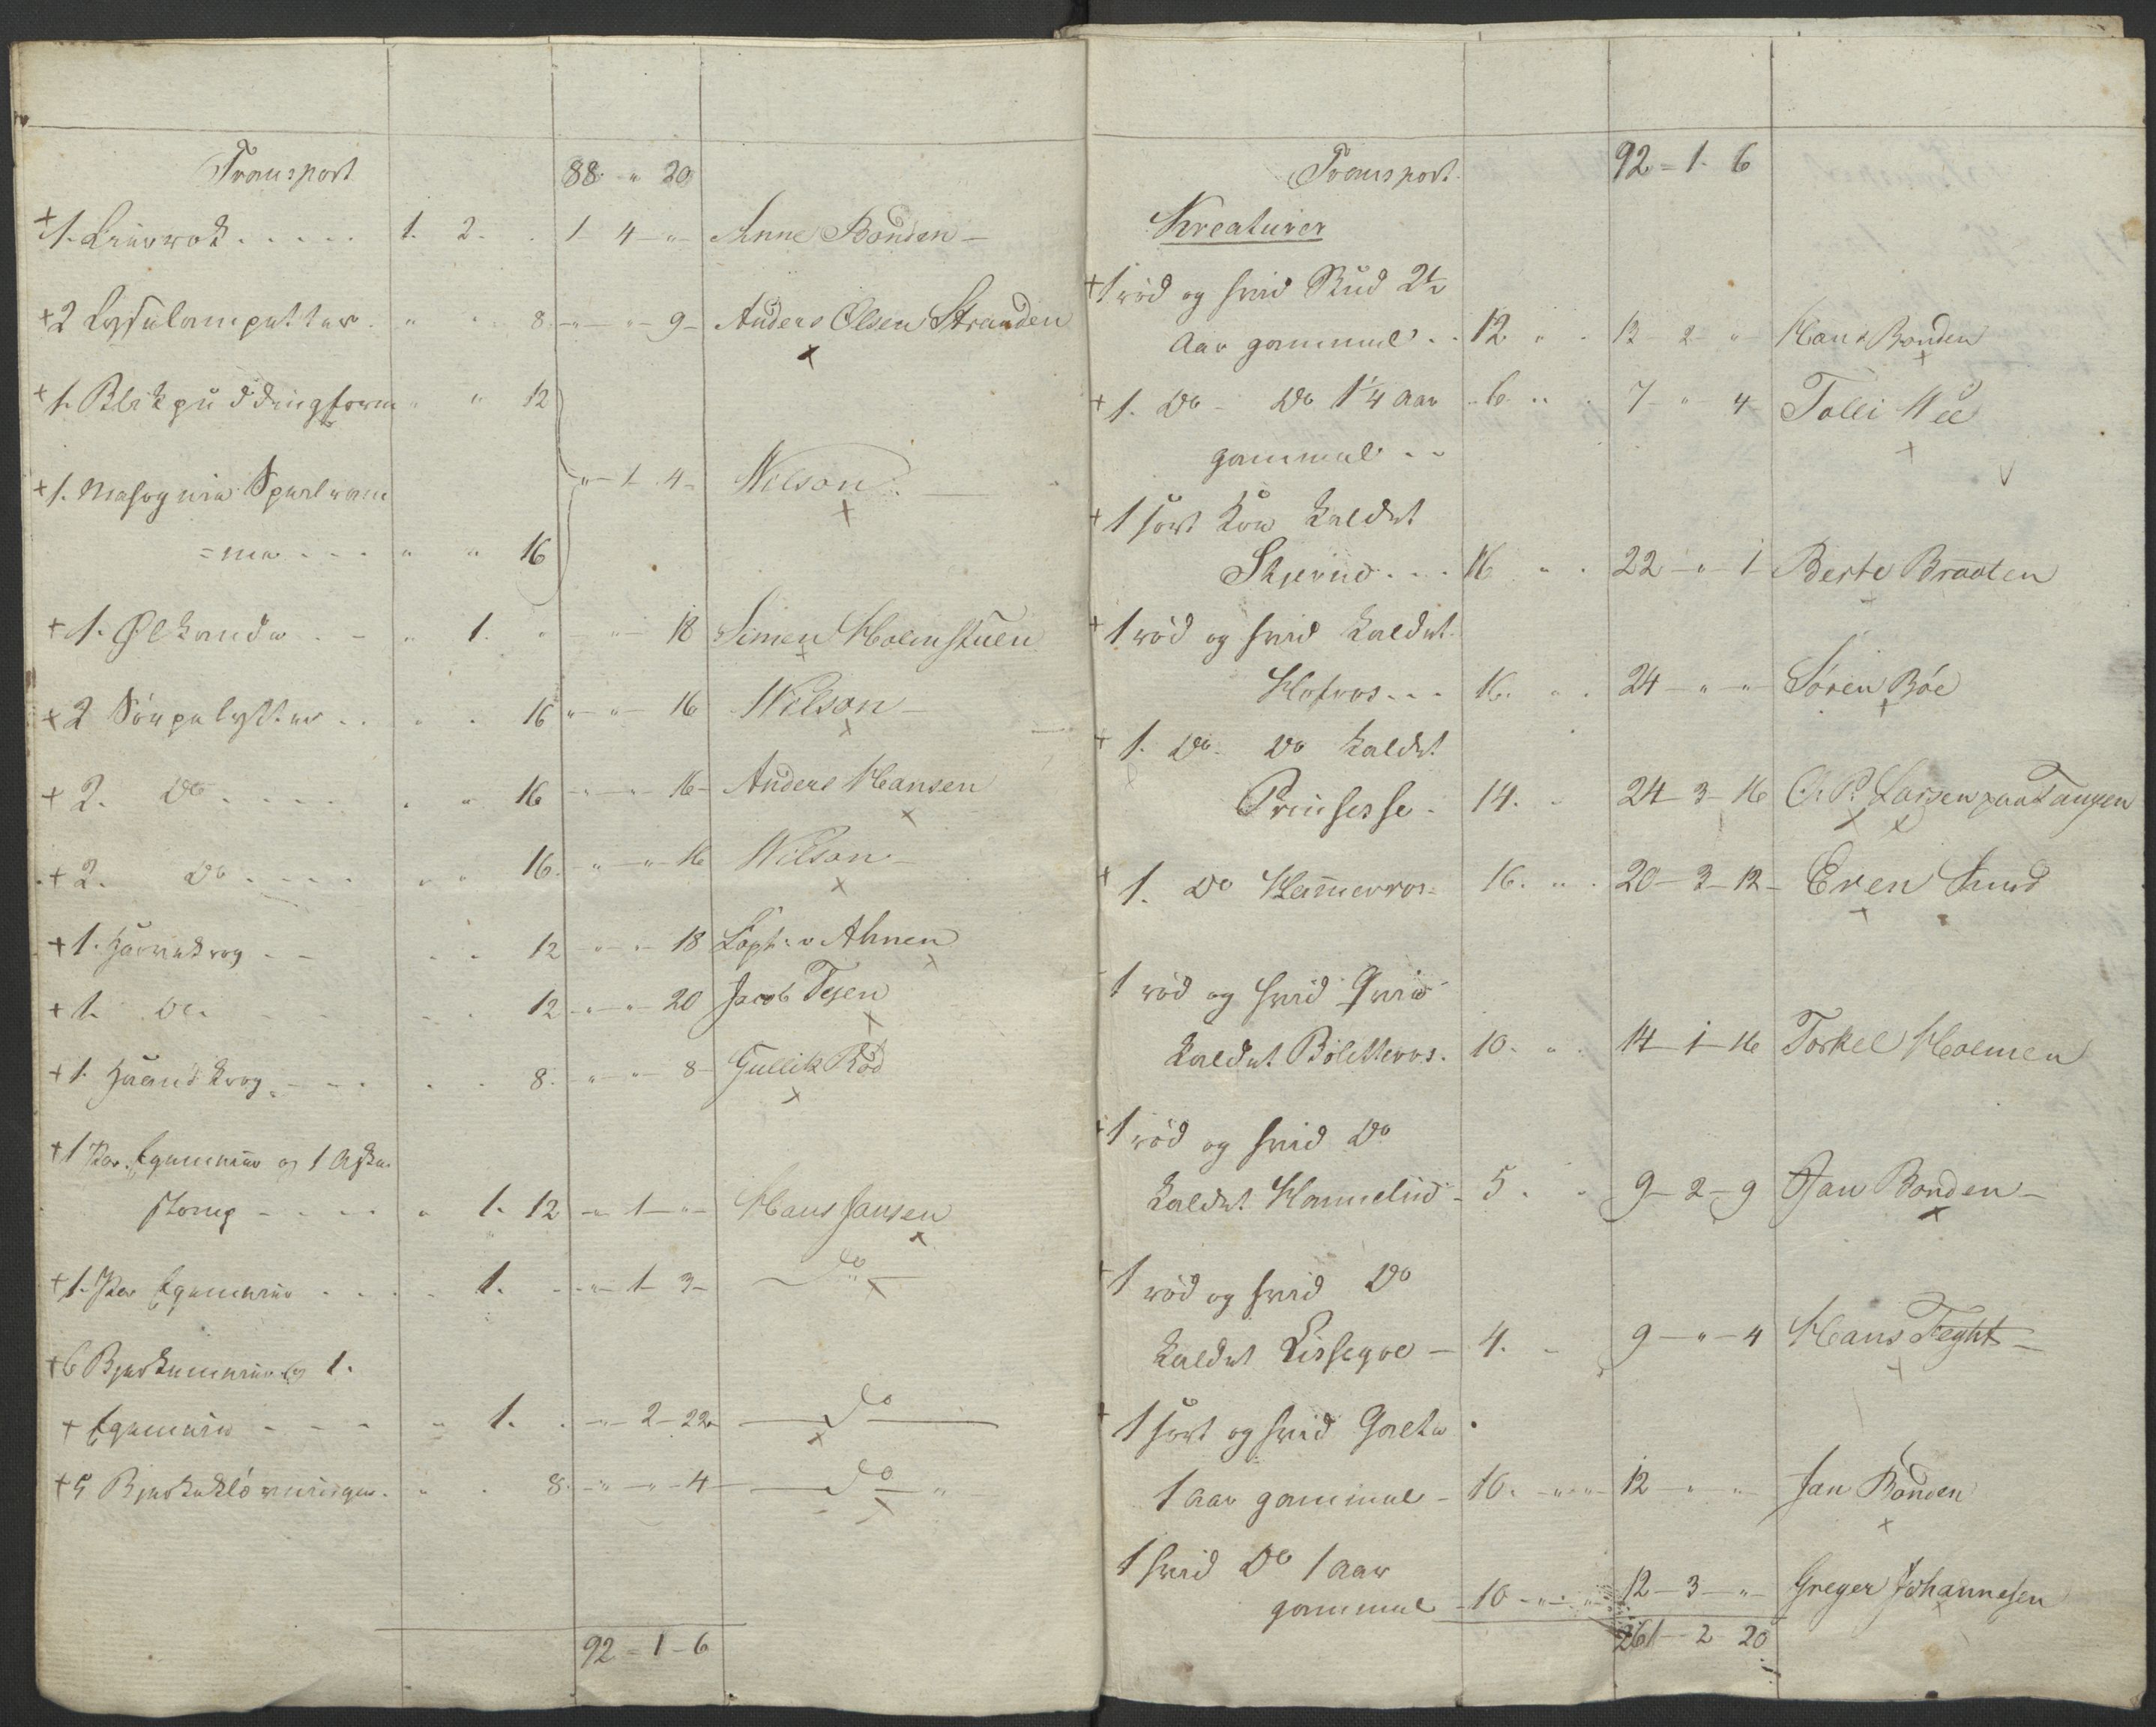 Transport 88 " 20
+ 1. Liinrok . . . . . 1. 2. . 1 4 " Anne Bonden –
+ 2 Lyselampetter . " . 8. " – " 9 – Anders Olsen Stranden
+ 1. Blikpuddingform " " 12
" – 1 4 – Nilson
+ 1. Mahogni Speilram
= me . . . " " 16
+ 1. Ølkande . . – " 1. " " 18 Simen Holmstuen
+ 2 Sörpebytter . . " . 16 " – " 16 Nilson –
+ 2. Do . . . . . " 16 – " – " 16 – Anders Hansen
+ 2. Do . . . . " " 16. – " – " 16 Nilson –
+ 1. Jernkrog – – . . 12 – " – 18 Capt: v Ahnen
+ 1. Do. – – . . 12 – " – " 20 Jacob Tejen
+ 1. Haandkrog . – – . . . 8. – " – " 8 – Gullik Röd
+ 1 Par Egemeier og 1 Aske
stomp – – – – " 1. 12 – " 1 – " – Hans Jansen
+ 1. Par Egemeier . . . . 1. – " – 1 – 3 – do
+ 6 Bjerkemeier og 1.
+ Egemeie – – – – " 1. . – " – 2 – 22 – do
+ 5 Bjerkeklövninger . " . 8. – " – " – 4 – do "
92 – 1 – 6
Transport. 92 = 1 – 6
Kreaturer
+ 1 röd og hvid Stud 2½
Aar gammel . . 12 " . 13 – 2 – " Hans Bonden
+ 1. Do – Do 1¼ Aar – 6 " . 7 – " 4 Tolli
gammel . .
+ 1 sort Koe kaldet
Skjerud . . . 16 " . 22 – " – 1 – Berte Braaten
+ 1 röd og hvid kaldet
Hofros . . . 16. " . 24 – " – " Sören Böe
+ 1. Do – Do kaldet
Prinsesse – 14. " 24 – 3 – 16 O. P. Larsen paa Tangen
+ 1. Do Hammerros – 16. " . 20 – 3 – 12 – Even Lund
1 röd og hvid Qvie
kaldet Böletteros . 10. " . 14 – 1 – 16 Torkel Holmen
+ 1 röd og hvid Do
kaldet Hammelid – 5 . . 9 – 2 – 9 Jan Bonden –
+ 1 röd og hvid Do
kaldet Lissegoe – 4. – 9 – " – 4 Hans Feght –
+ 1 sort og hvid Galte .
1 Aar gammel – 10. – " – " 12 – " – " Jan Bonden
1 hvid Do 1 Aar
gammel – 10 – " – " 12 – 3 – " Greger Johannesen
261 – 2 20